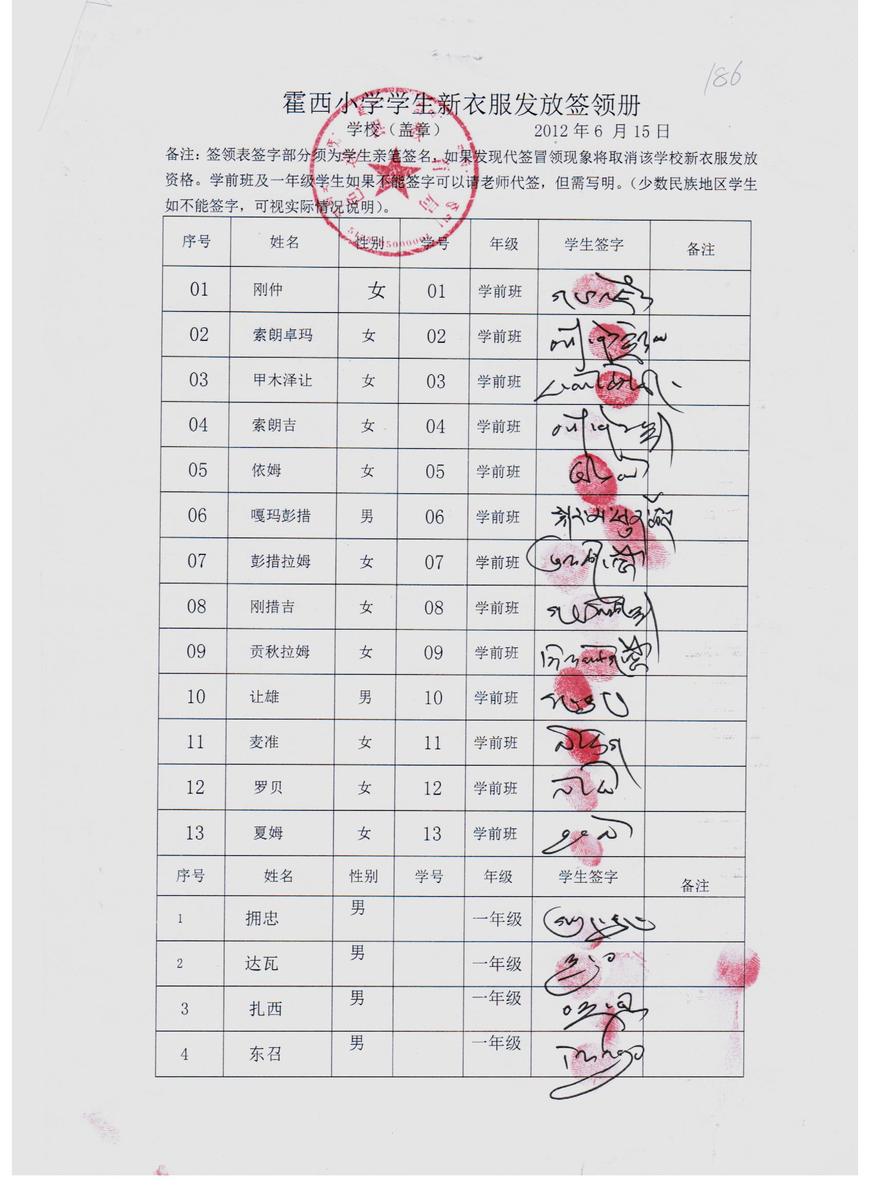 186
霍西小学学生新衣服发放签领册
学校（盖章） 2012 年 6 月 15 日
备注：签领表签字部分须为学生亲笔签名，如果发现代签冒领现象将取消该学校新衣服发放
资格。学前班及一年级学生如果不能签字可以请老师代签，但需写明。（少数民族地区学生
如不能签字，可视实际情况说明）。
序号 姓名 性别 学号 年级 学生签字 备注
01 刚仲 女 01 学前班
02 索朗卓玛 女 02 学前班
03 甲木泽让 女 03 学前班
04 索朗吉 女 04 学前班
05 依姆 女 05 学前班
06 嘎玛彭措 男 06 学前班
07 彭措拉姆 女 07 学前班
08 刚措吉 女 08 学前班
09 贡秋拉姆 女 09 学前班
10 让雄 男 10 学前班
11 麦准 女 11 学前班
12 罗贝 女 12 学前班
13 夏姆 女 13 学前班
序号 姓名 性别 学号 年级 学生签字 备注
1 拥忠 男 一年级
2 达瓦 男 一年级
3 扎西 男 一年级
4 东召 男 一年级